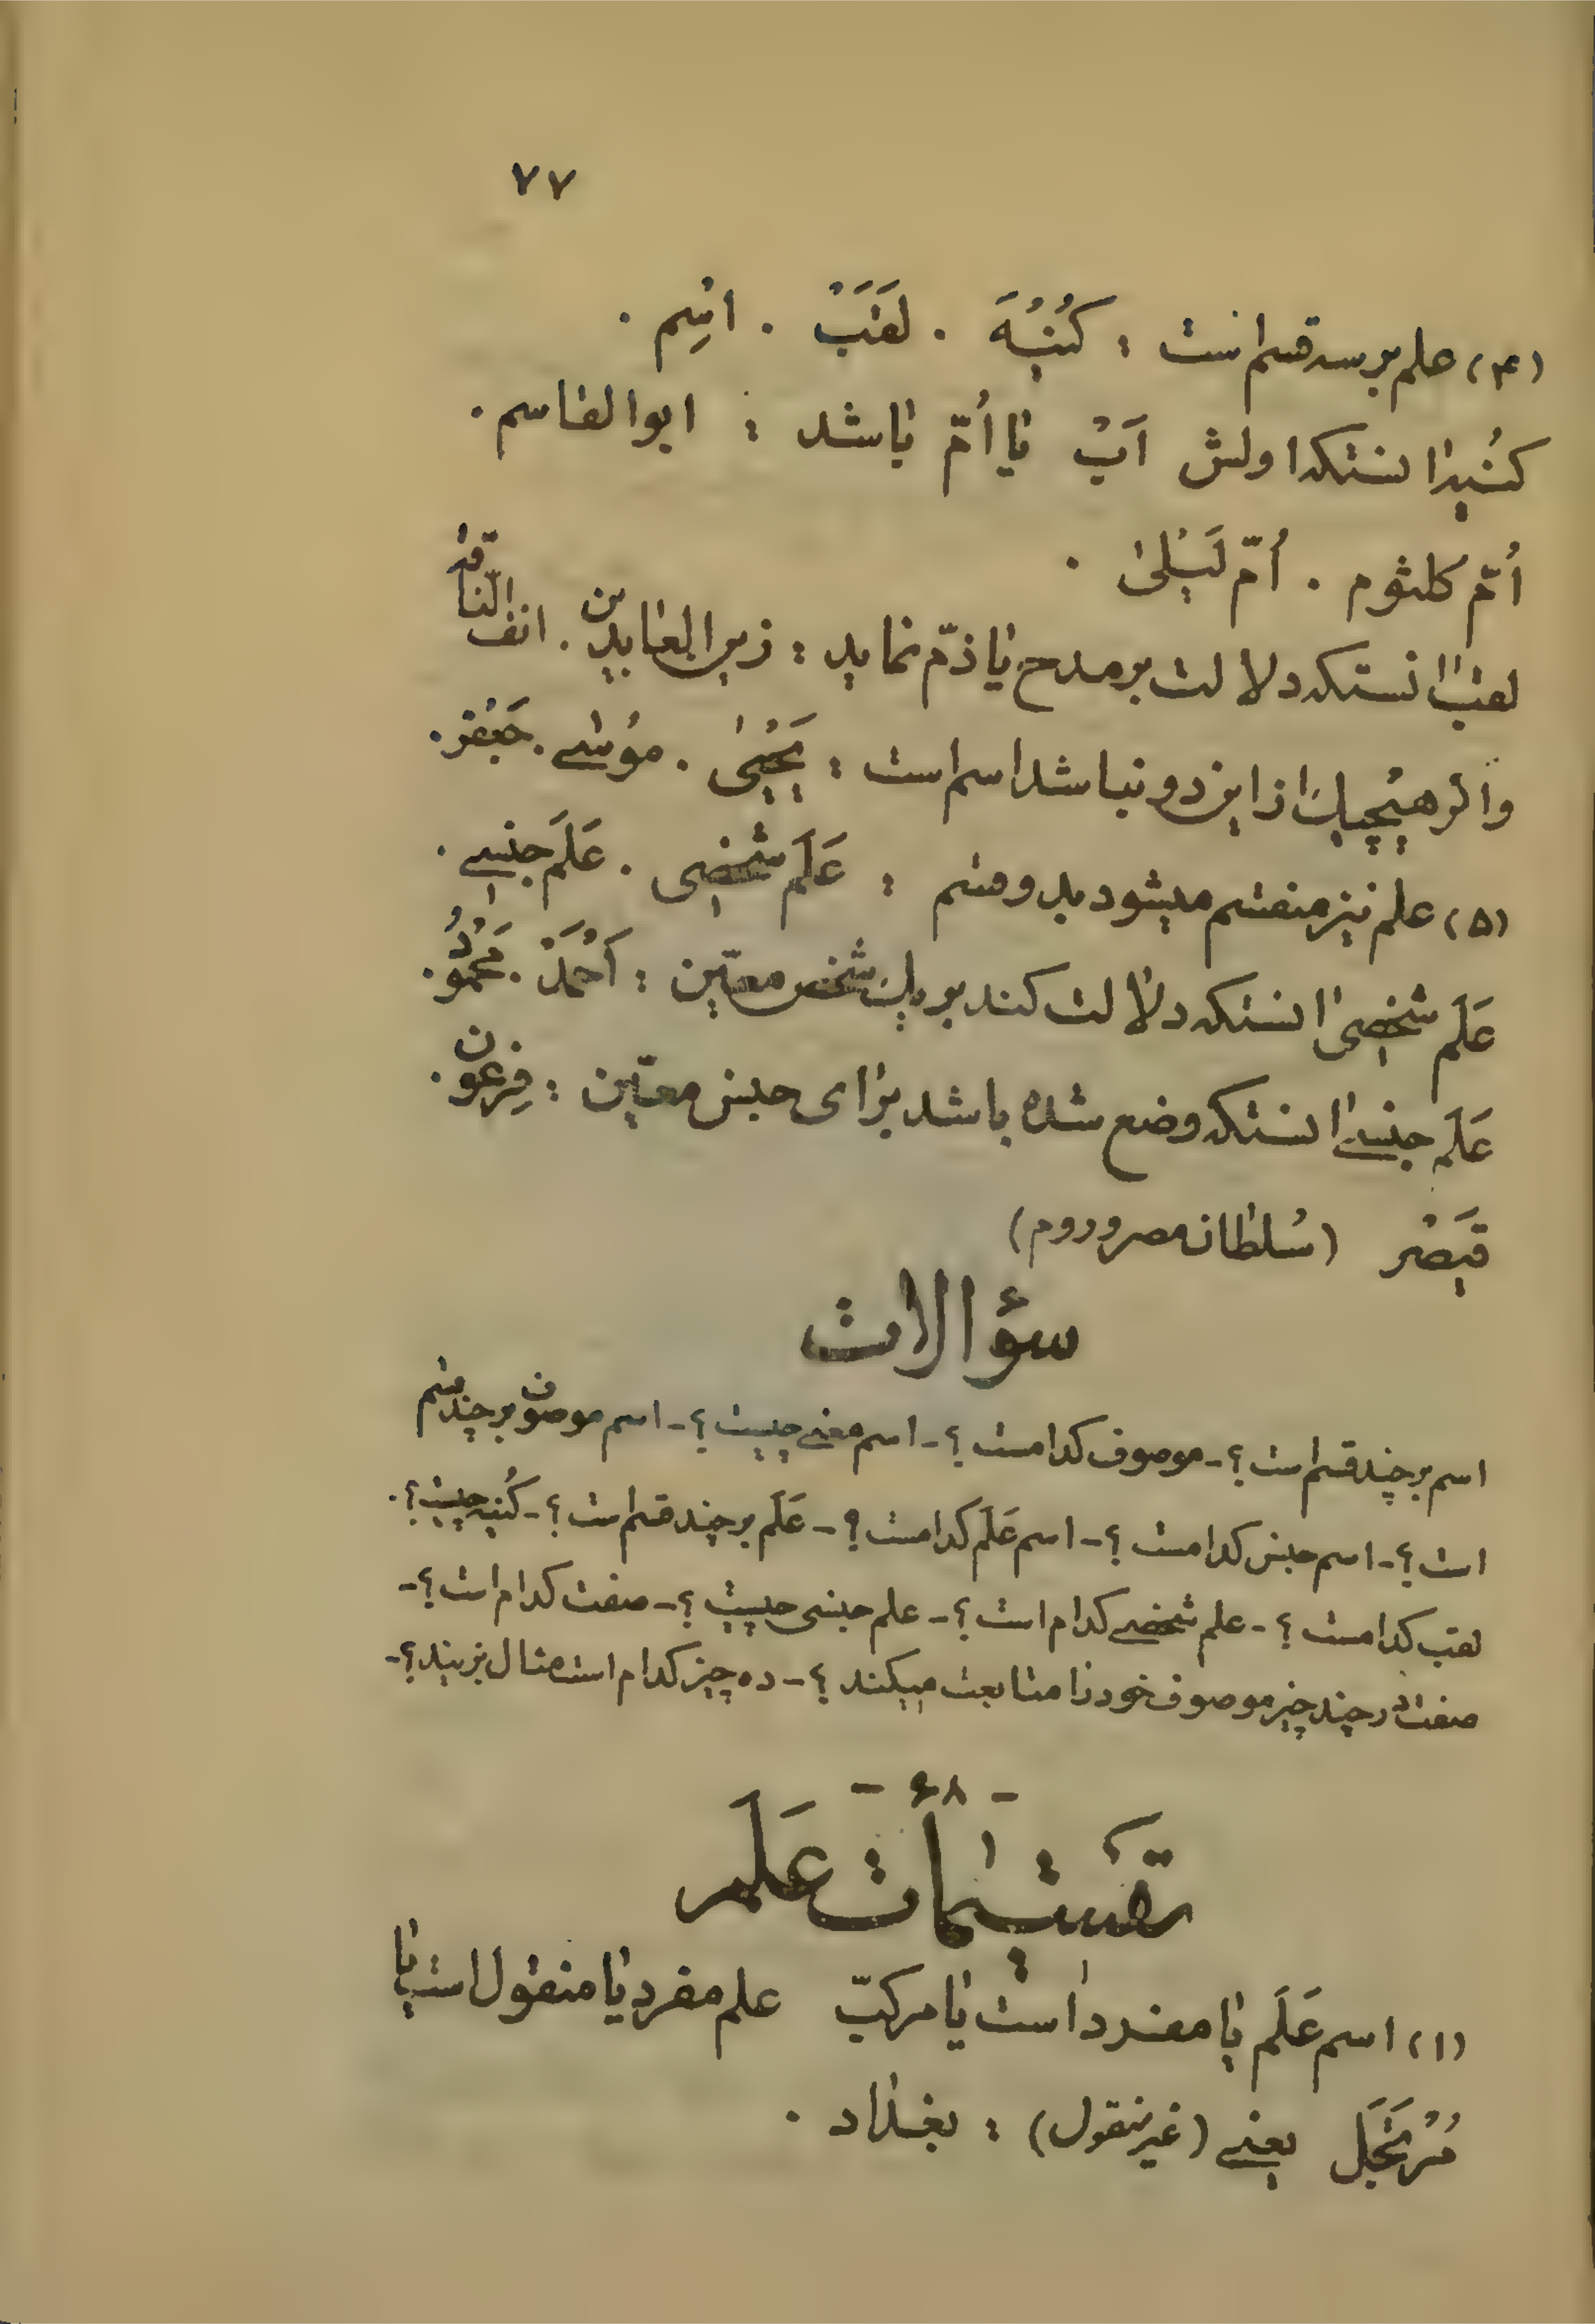 ۷۷
(۴) علم بر سه قسم است : کُنْیَه . لَقَبْ . اِسْم .
کُنْیه آنستکه اولش اَبْ یا اُمّ باشد : ابوالقاسم .
اُمّ کلثوم . اُمّ لَیْلیٰ .
لقب آنستکه دلالت بر مدح یا ذمّ نماید : زین العابدین . انف النّاقه
واگر هیْچیک از این دو نباشد اسم است : یَحْییٰ . موُسٰی . جَعْفَر .
(۵) علم نیز منقسم میشود بدو قسم : عَلَم شخصی . عَلَم جنسی .
عَلَم شخصی آنستکه دلالت کند بر یک شخص معیّن : اَحْمَدْ . مَحْمُودُ .
عَلَم جنسی آنستکه وضع شده باشد برای جنس معیّن : فِرعَون .
قَیصَرْ (سُلطان مصر و روم)
سؤالات
اسم بر چند قسم است ؟ - موصوف کدامست ؟ - اسم معنی چیست ؟ - اسم موصوف بر چند قسم
است ؟ - اسم جنس کدامست ؟ - اسم عَلَم کدامست ؟ - عَلَم بر چند قسم است ؟ - کُنیه چیست ؟ .
لقب کدامست ؟ - علم شخصی کدام است ؟ - علم جنسی چیست ؟ - صفت کدام است ؟ -
صفت در چند چیز موصوف خود را متابعت میکند ؟ - ده چیز کدام است مثال بزنید ؟ -
- ۶۸ -
تقسیمات عَلَم
(۱) اسم عَلَم یا مفرد است یا مرکبّ علم مفرد یا منقول است یا
مُرْتَجَل یعنی (غیر منقول) : بغداد .